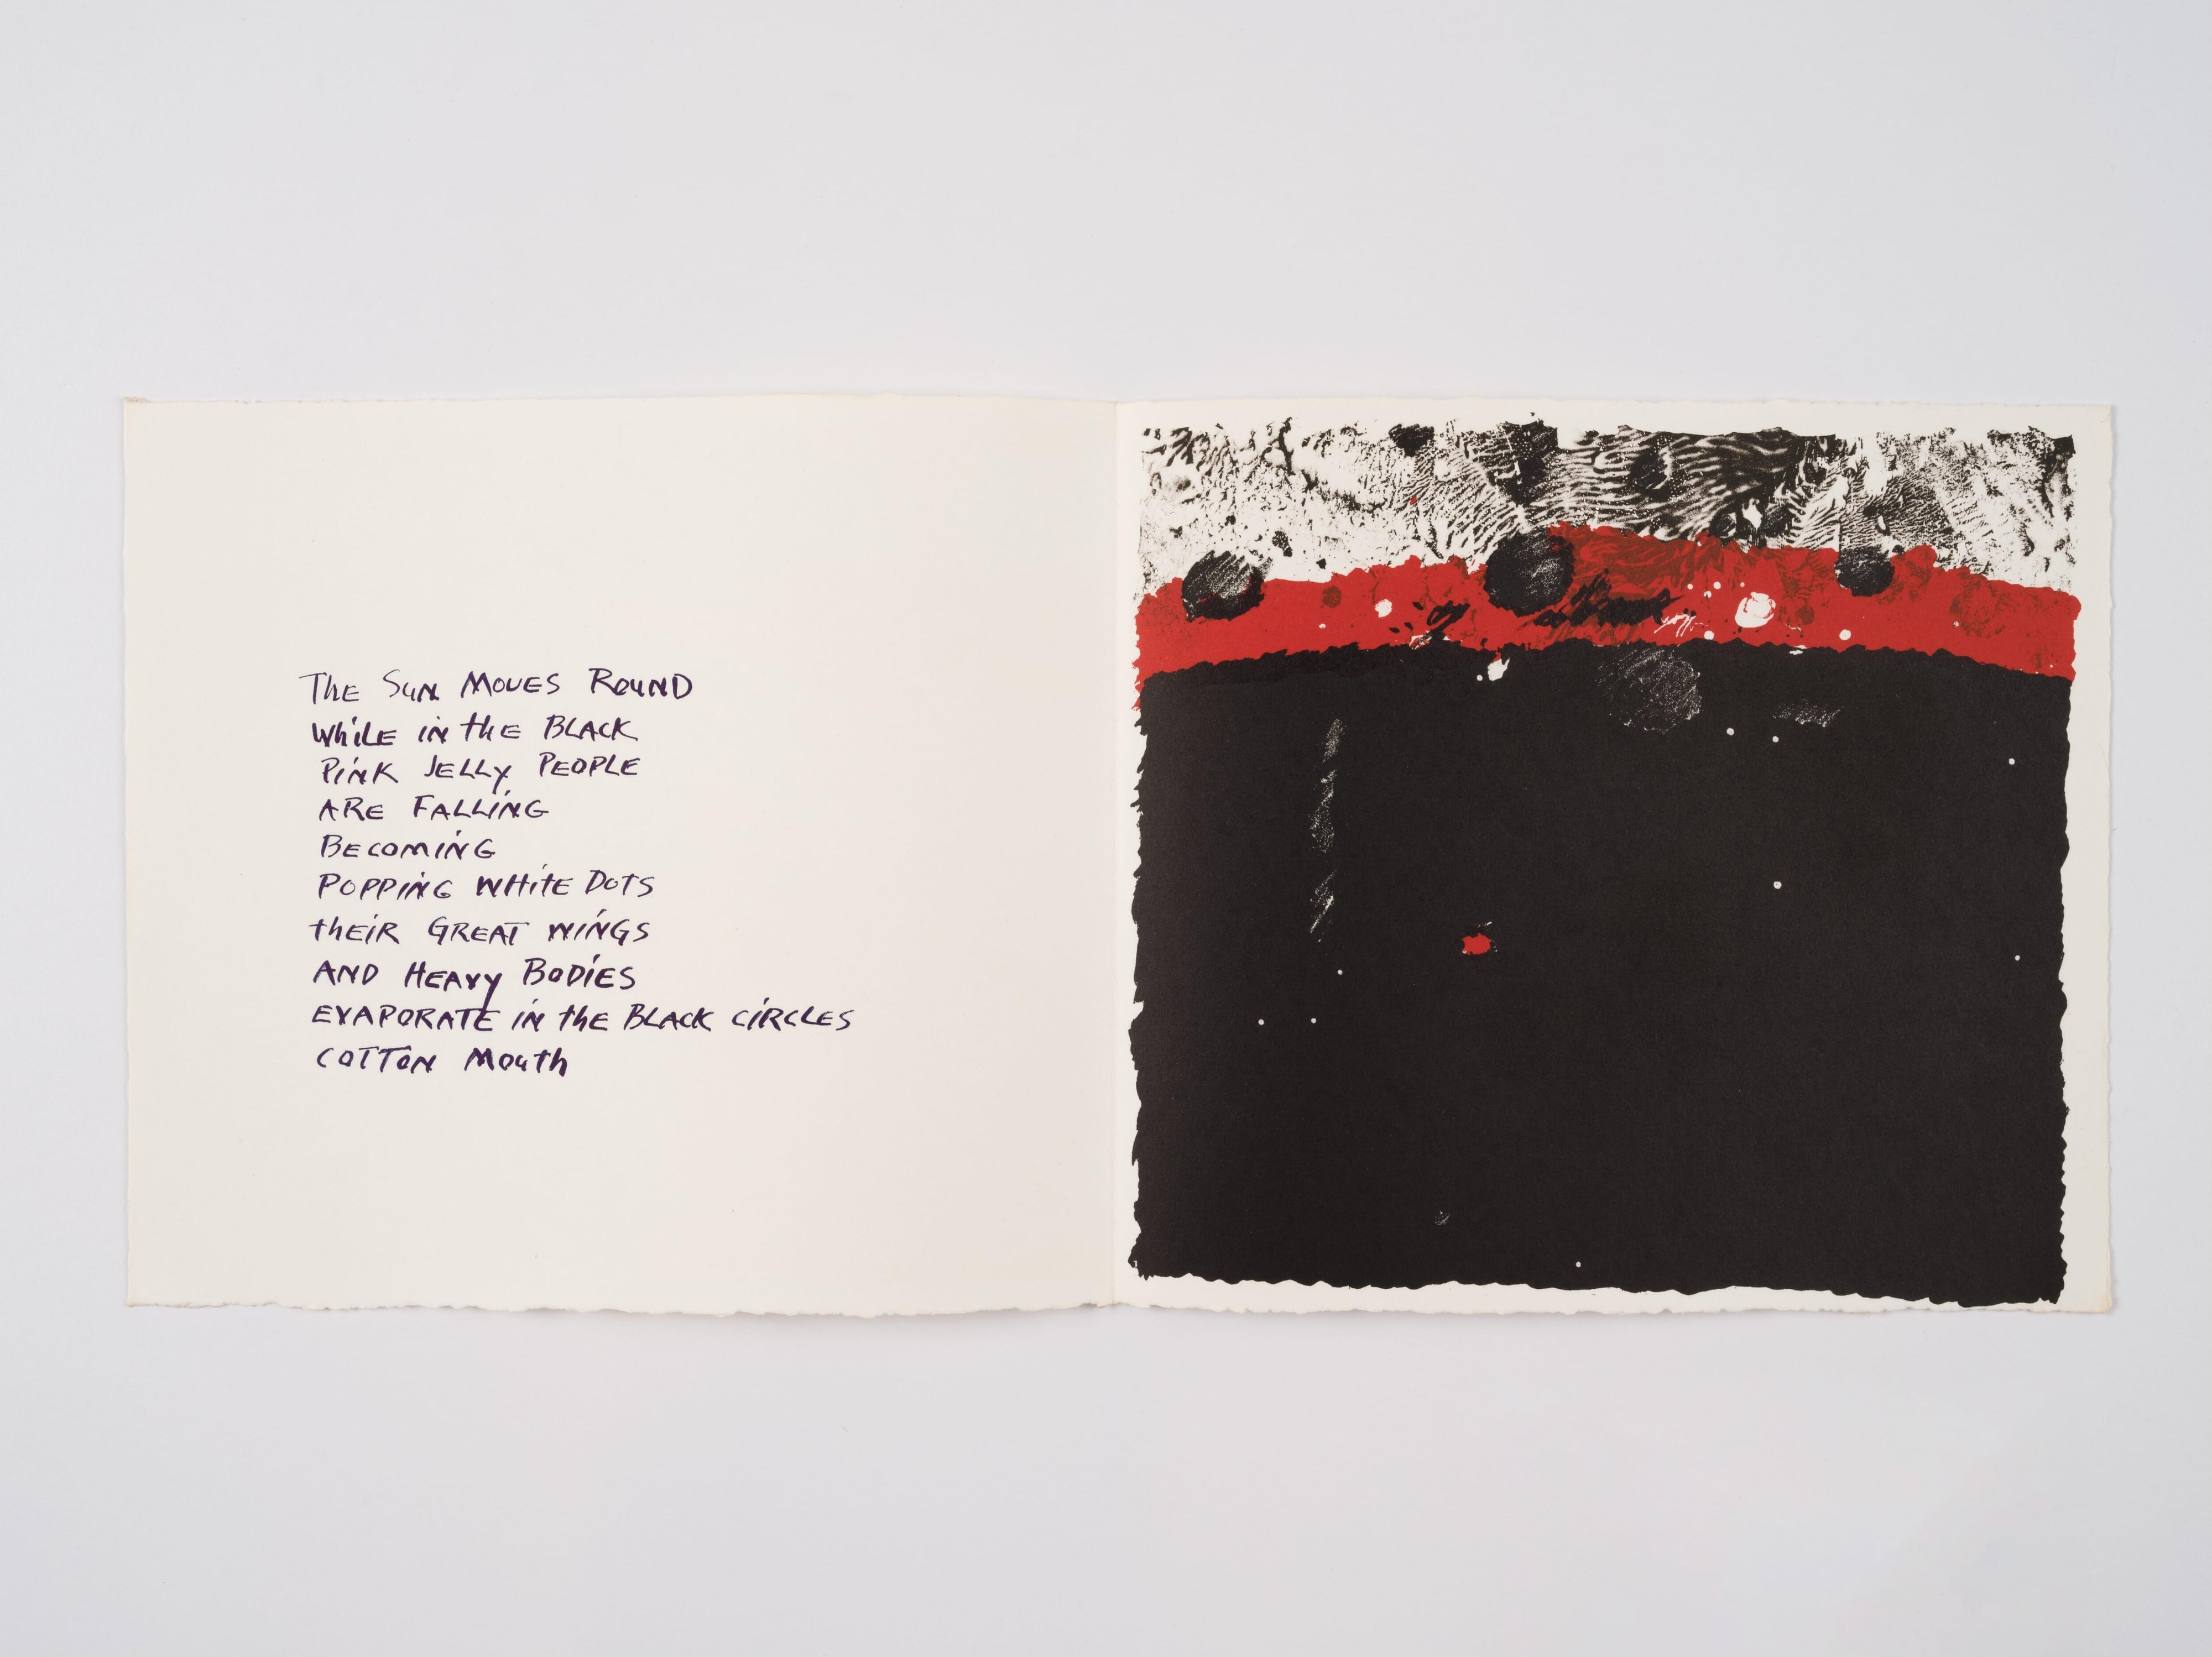 THE SUN MOVES ROUND
WHiLE iN tHE BLACK
PiNK JELLY PEOPLE
ARE FALLiNG
BECOMiNG
POPPiNG WHitE DOTS
tHEiR GREAT WiNGS
AND HEAVY BODiES
EVAPORATE iN tHE BLACK CiRCLES
COTTON MOUtH